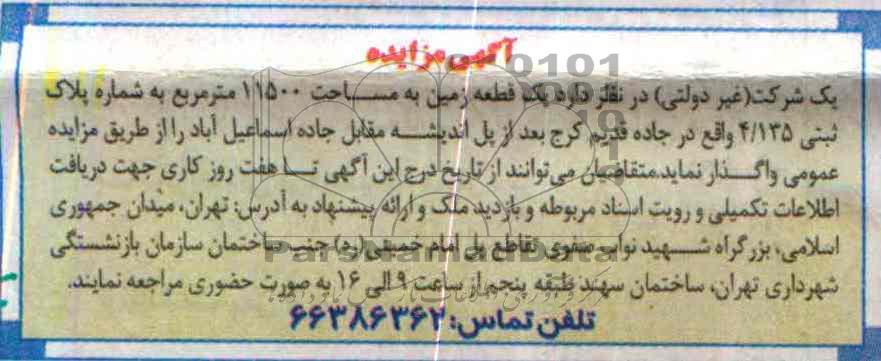 آگهی مزایده
یک شرکت(غیر دولتی) در نظر دارد یک قطعه زمین به مساحت ۱۱۵۰۰ مترمربع به شماره پلاک
ثبتی ۴/۱۳۵ واقع در جاده قدیم کرج بعد از پل اندیشه مقابل جاده اسماعیل آباد را از طریق مزایده
عمومی واگذار نماید.متقاضیان می‌توانند از تاریخ درج این آگهی تا هفت روز کاری جهت دریافت
اطلاعات تکمیلی و رویت اسناد مربوطه و بازدید ملک و ارائه پیشنهاد به آدرس: تهران، میدان جمهوری
اسلامی، بزرگراه شهید نواب صفوی تقاطع پل امام خمینی(ره) جنب ساختمان سازمان بازنشستگی
شهرداری تهران، ساختمان سهند طبقه پنجم از ساعت ۹ الی ۱۶ به صورت حضوری مراجعه نمایند.
تلفن تماس: ۶۶۳۸۶۳۶۲
ParsNamadData